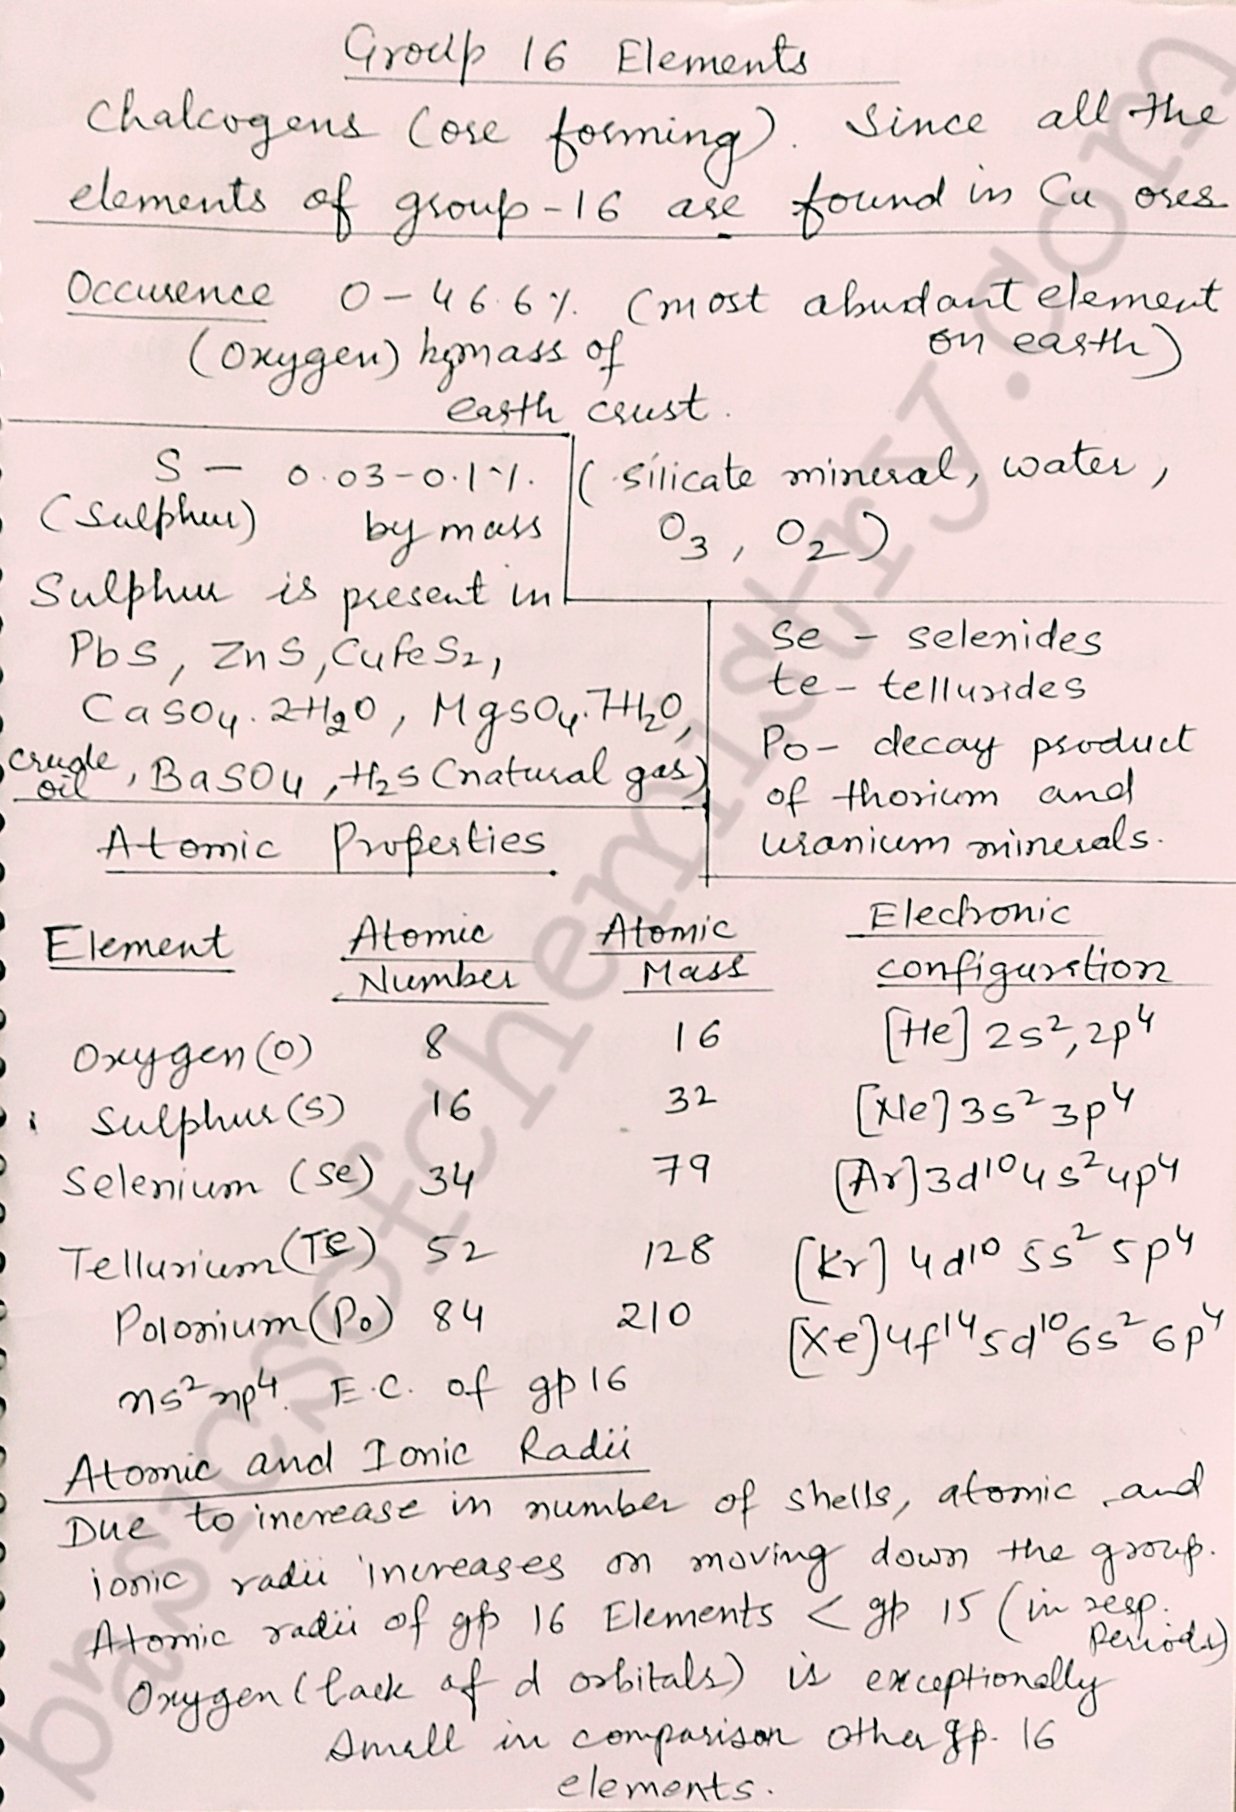 Group 16 Elements
Chalcogens (ore forming). Since all the
elements of group-16 are found in Cu ores
Occurence O - 46.6%. (most abundant element
on earth)
(Oxygen) by mass of
earth crust.
S - 0.03-0.1%.
(Sulphur) by mass
(silicate mineral, water,
O3, O2)
Sulphur is present in
PbS, ZnS, CuFeS2,
CaSO4.2H2O, MgSO4.7H2O,
crude oil, BaSO4, H2S (natural gas)
Se - selenides
te - tellurides
Po - decay product
of thorium and
uranium minerals.
Atomic Properties
Element Atomic Number Atomic Mass Electronic configuration
Oxygen (O) 8 16 [He] 2s², 2p⁴
Sulphur (S) 16 32 [Ne] 3s² 3p⁴
Selenium (Se) 34 79 [Ar] 3d¹⁰ 4s² 4p⁴
Tellurium (Te) 52 128 [Kr] 4d¹⁰ 5s² 5p⁴
Polonium (Po) 84 210 [Xe] 4f¹⁴ 5d¹⁰ 6s² 6p⁴
ns² np⁴. E.C. of gp 16
Atomic and Ionic Radii
Due to increase in number of shells, atomic and
ionic radii increases on moving down the group.
Atomic radii of gp 16 Elements < gp 15 (in resp.
Periods)
Oxygen (lack of d orbitals) is exceptionally
small in comparison other gp. 16
elements.
basicsofchemistry.com